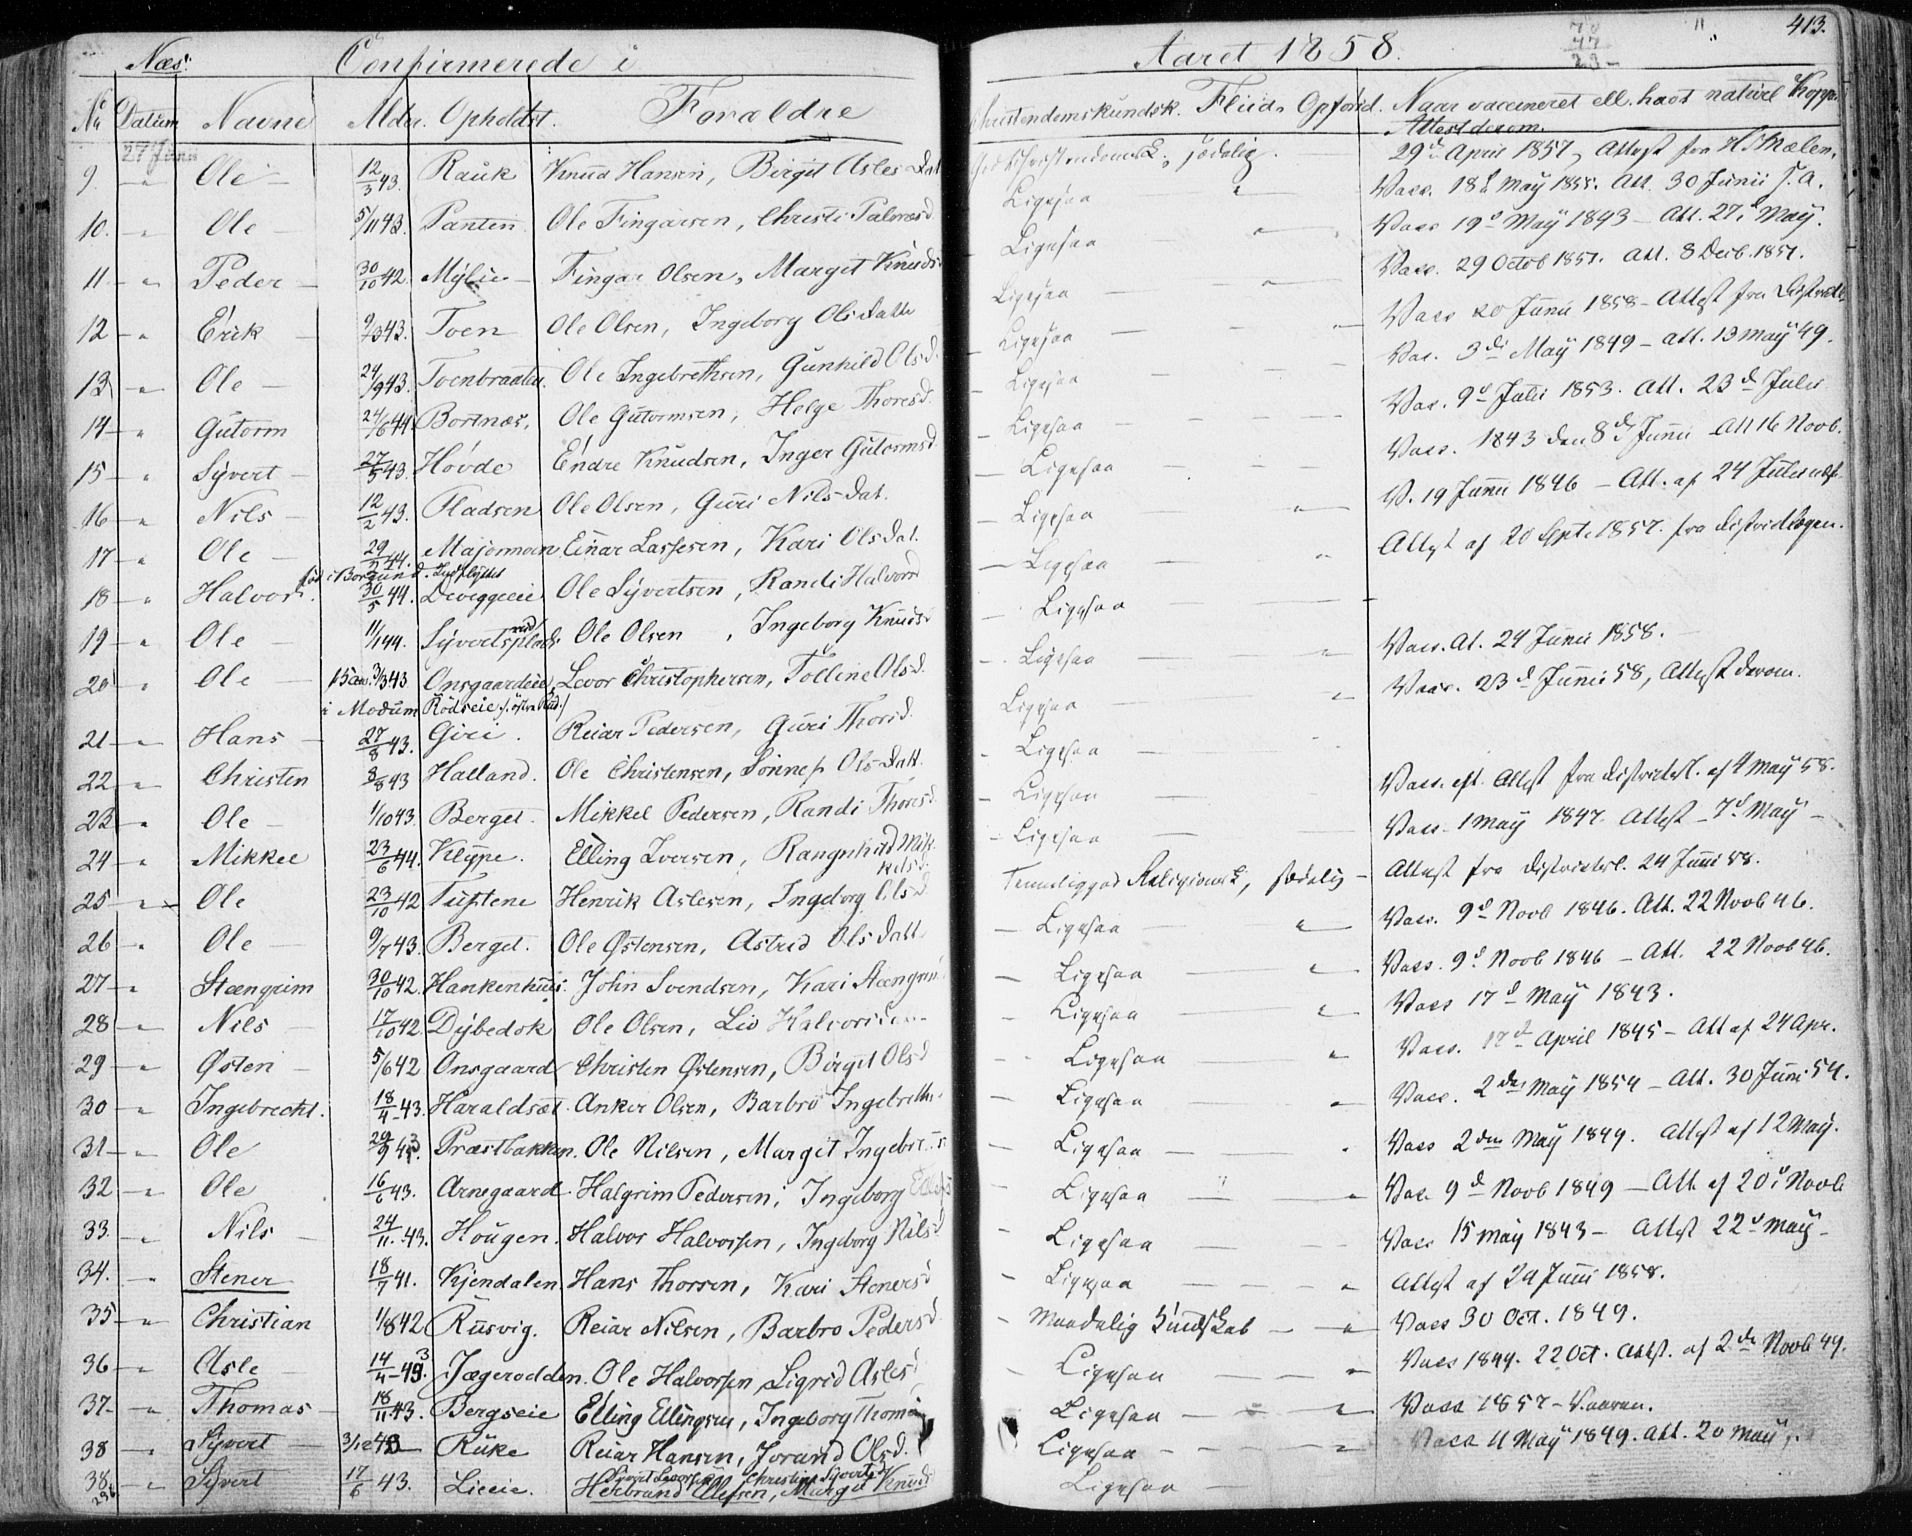 413.
Næs. Confirmerede i Aaret 1858.
No Datum Navne Alder. Opholdst. Forældre Christendomskundsk. Flid. Opførsel. Naar vaccineret ell. havt naturl. Kopper
Attest derom.
27 Juni
9. " Ole 12/3 43. Rauk Knud Hansen, Birgit Asles Dat 29d April 1857, Attest fra
Ligesaa " Vacc. 18d May 1855. Att. 30 Junii s.a.
10. " Ole 5/11 43. Panten Ole Fingarsen, Christi Palmesd Ligesaa Vacc 19d May 1843 - Att. 27d May.
11 " Peder 30/10 42. Myhre Fingar Olsen, Margit Knudsd Ligesaa Vacc. 29 Octob 1857. Att. 8 Decb. 1857.
12 " Erik 9/3 43. Toen Ole Olsen, Ingeborg Olsdatte Ligesaa Vacc 20 Junii 1858 - Attest fra
13 " Ole 24/9 43. Toenbraaten. Ole Ingebrethsen, Gunhild Olsd. Ligesaa Vac. 3di May 1849 - att. 13 May 49.
14 " Gutorm 24/6 44. Bortnæs. Ole Gutormsen, Helge Thoresd. Ligesaa Vac. 9d Julii 1853. Att. 23d Julii
15 " Syvert 27/5 43. Hovde Endre Knudsen, Inger Gutormsd Ligesaa Vacc. 1843 den 8de Junii Att 16 Novb.
16 " Nils 12/2 43. Pladsen Ole Olsen, Guri Nils-dat. Ligesaa V. 19 Junii 1846 - Att. af 24 Julii
17 " Ole 29/2 44. Majormoen Einar Lassesen, Kari Olsdat. Ligesaa Attest af 20 Sept. 1857. fra
fød i Borgund. Indflyttet
18 " Halvor. 30/5 44. Ole Syvertsen, Randi Halvorsd Ligesaa
19 " Ole 11/1 44. Syvertsplads Ole Olsen, Ingeborg Knudsd Ligesaa Vacc. At. 24 Junii 1858.
20 " Ole 3/3 43 Onsgaardeie, Levor Christophersen, Tolline Olsd. Ligesaa Vacc. 23d Junii 58, Attest derom.
i Modum Rödseie
21 " Hans 27/8 43. Giri. Reiar Pedersen, Guri Thorsd. Ligesaa
22 " Christen 3/8 43 Halland. Ole Christensen, Sönnef Ols-Datt. Ligesaa Vacc. eft. Attest fra Districtsl. af 4 May 58.
23 " Ole 1/10 43. Berget. Mikkel Pedersen, Randi Thoresd. Ligesaa Vacc. 1 May 1847. Attest 7d May
24 " Mikkel 23/6 44. Klype. Elling Iversen, Rangnhild Mikkelsd. Temmelig god Religionsk, sædelig - Attest fra Districtsl. 24 Juni 58.
25 " Ole 23/10 42 Tuftene Henrik Aslesen, Ingeborg Olsd Ligesaa " Vacc. 9d Novb 1846. Att. 22 Novb 46.
26 " Ole 9/7 43. Berget. Ole Østensen, Astrid Olsdatt Ligesaa " Vacc. 9d Novb 1846 - Att. 22 Novb 46.
27 " Stængrim 30/10 42. Hankenhuus. John Svendsen, Kari Stængrim Ligesaa " Vacc 17d May 1843.
28 " Nils 17/10 42. Dybedok Ole Olsen, Liv Halvorsd Ligesaa " Vacc. 17d April 1845 - Att af 24 Apr.
29 " Østen 5/6 42 Onsgaard Christen Østensen, Birgit Olsd Ligesaa " Vacc. 2den May 1854 - Att. 30 Juni 54.
30 " Ingebrecht. 18/4 43. Haraldset. Anker Olsen, Barbro Ingebreths. Ligesaa Vacc 2den May 1849. Attest af 12 May.
31 " Ole 29/9 43. Præstbakken. Ole Nilsen, Margit Ingebr. Ligesaa Vac. 9d Novb 1849 - Att. af 20d Novb
32 " Ole 16/6 43. Arnegaard Halgrim Pedersen, Ingeborg Ligesaa Vacc 15 May 1843 - Attest 22d May
33. " Nils 24/11 43. Hougen. Halvor Halvorsen, Ingeborg Nilsd Ligesaa
34. " Stener 18/7 41. Kjendalen Hans Thorsen, Kari Stenersd Ligesaa " Attest af 24 Juni 1858.
35 " Christian 1/8 42 Rusvig. Reiar Nilsen, Barbro Pedersd Maadelig Kundskab " Vacc 30 Oct. 1849.
36 " Asle 14/4 43. Jægerodden. Ole Halvorsen, Sigrid Aslesd Ligesaa " Vacc 1849. 22 Oct. Attst. af 2de Novb 49.
37 " Thomas 18/11 43. Bergseie Elling Ellingsen, Ingeborg Thom Ligesaa " Vacc 1857 - Vaaren.
38 " Syvert 3/12 43 Ruke Reiar Hansen, Jorand Olsd. Ligesaa " Vacc 11 May 1849. Att. 20 May.
38. " Syvert 17/6 43. Lieeie. Syvert Levorsen, Christine Syvertsd Ligesaa
Herbrand Olesen, Margit Knudsd